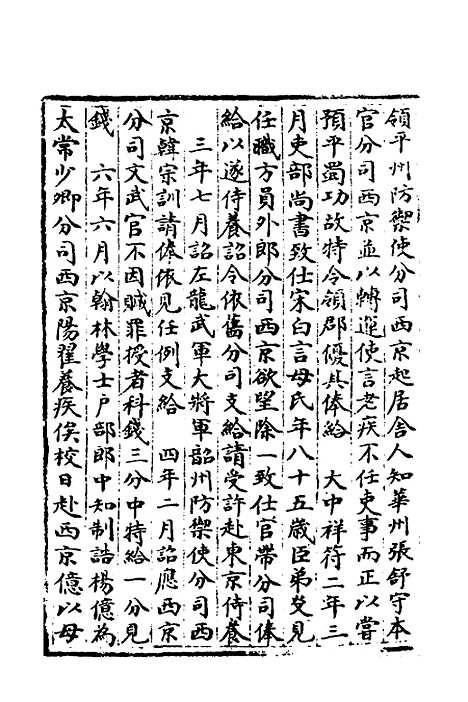 領平州防禦使分司西京起居舎人知華州張舒守本
官分司西京並以轉運使言老疾不任吏事而正以嘗
預平蜀功故特令領郡優其俸給　大中祥符二年三
月吏部尚書致仕宋白言母氏年八十五歳臣弟㚟見
任職方員外郎分司西京欲望除一致仕官帶分司俸
給以遂侍養詔令依舊分司支給請受許赴東京侍養
三年七月詔左龍武軍大將軍韶州防禦使分司西
京韓宗訓請俸依見任例支給　四年二月詔應西京
分司文武官不因贓罪授者科錢三分中特給一分見
錢　六年六月以翰林學士户部郎中知制誥楊億為
太常少卿分司西京陽翟養疾俟校日赴西京億以母